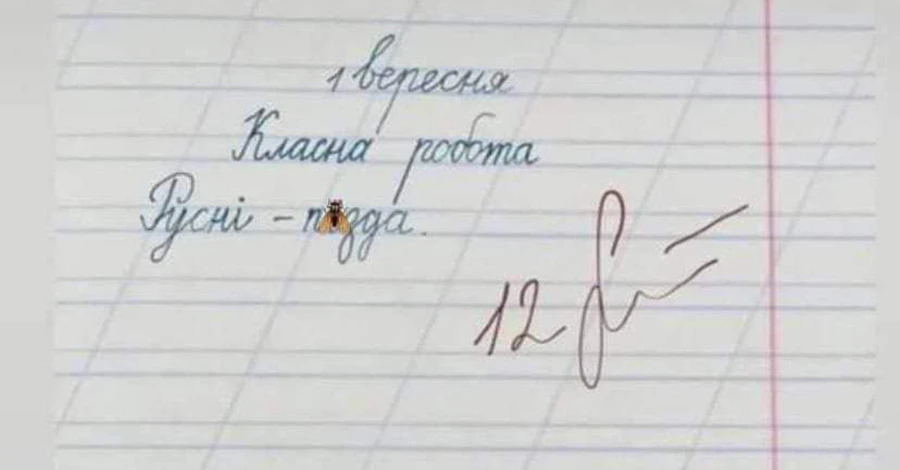 1 вересня
Класна робота
Русні - п🐝зда.
12